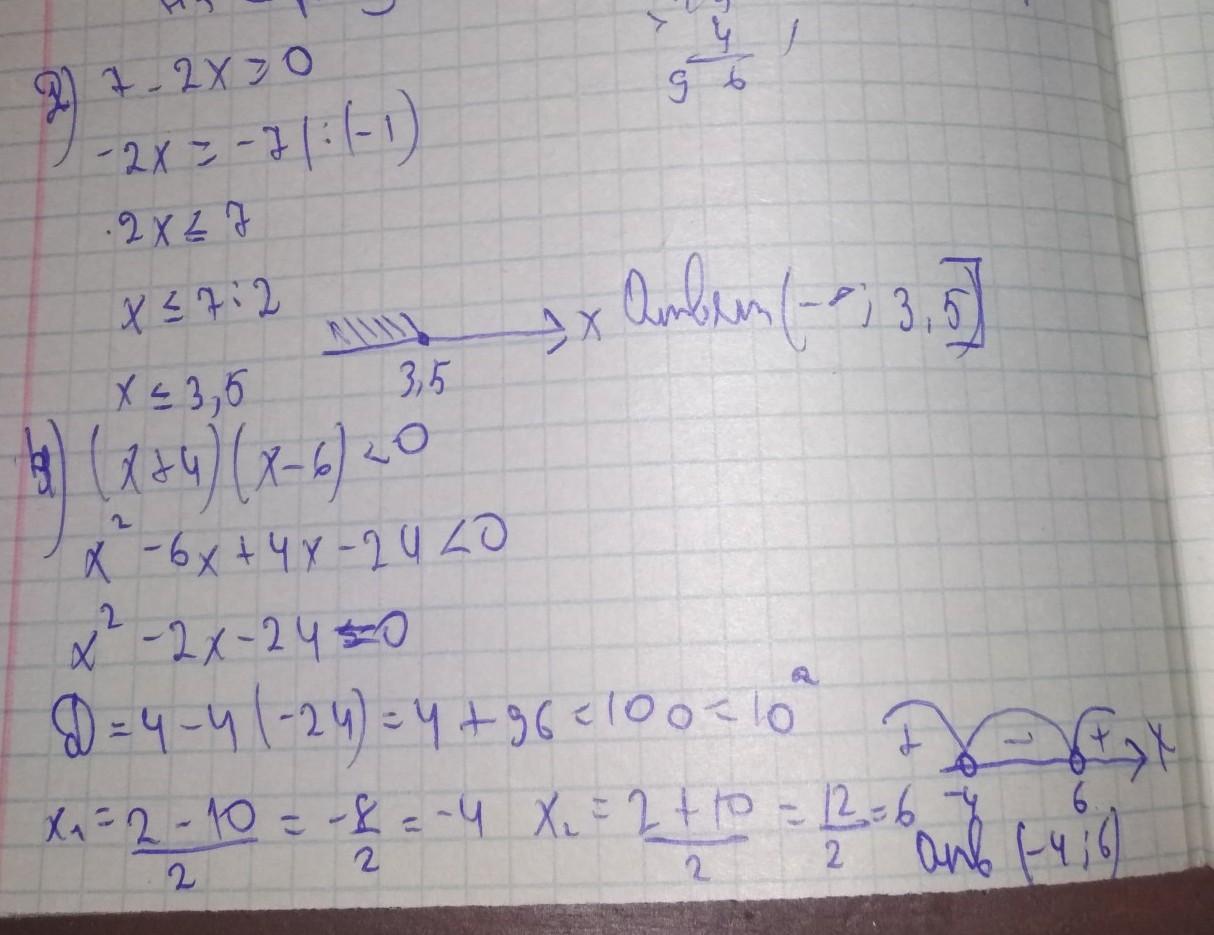 4/6
9
2) 7 - 2x ≥ 0
-2x ≥ -7 | : (-1)
2x ≤ 7
x ≤ 7 : 2
x ≤ 3,5
3,5
x Ответ (-∞; 3,5]
(x+4)(x-6) < 0
x² - 6x + 4x - 24 < 0
x² - 2x - 24 = 0
D = 4 - 4(-24) = 4 + 96 = 100 = 10²
x₁ = (2 - 10)/2 = -8/2 = -4 x₂ = (2 + 10)/2 = 12/2 = 6
+ - + x
-4 6
Отв (-4; 6)